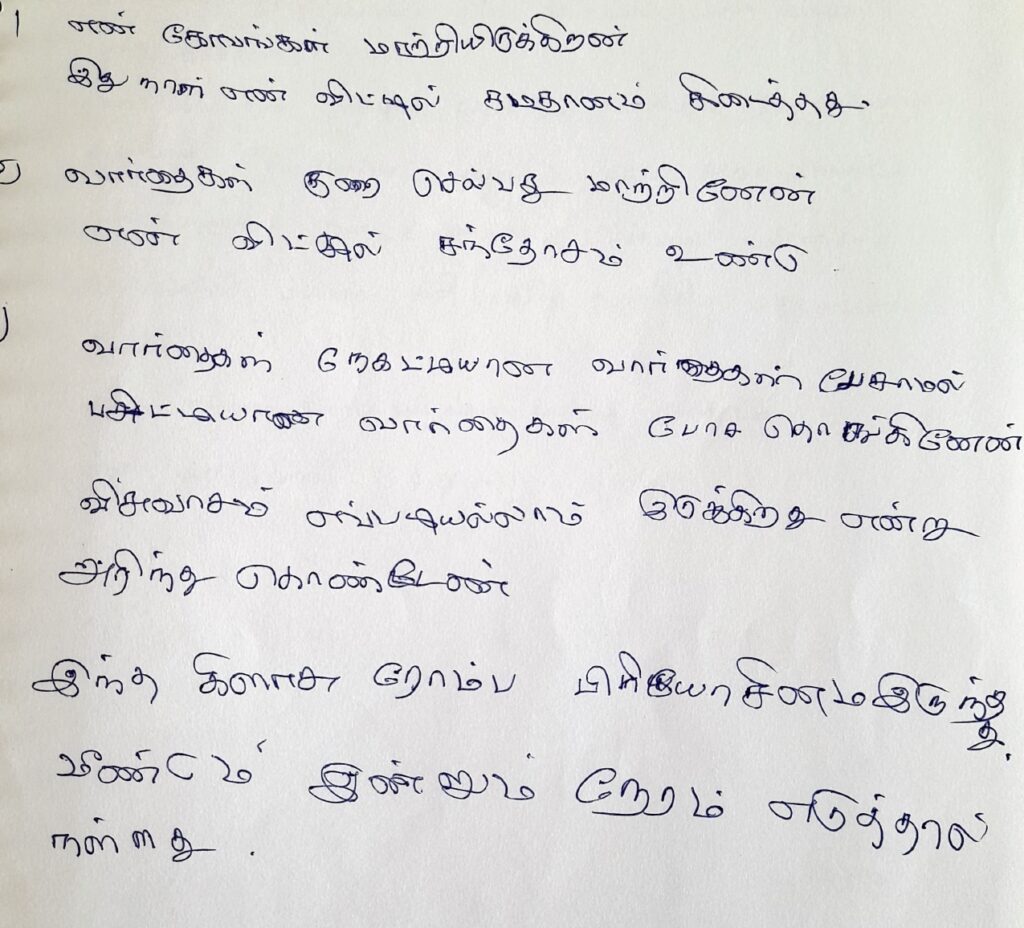 1 என் கோவங்கள் மாற்றியிருக்கிறன்
இது நாள் என் விட்டில் சமதானம் கிடைத்தது.
வார்தைகள் குறை செல்வது மாற்றினேன்
என் விட்டில் சந்தோசம் உண்டு.
வார்தைகள் நேகட்டியான வார்தைகள் பேசாமல்
பசிட்டியான வார்தைகள் போச தொடங்கினேன்
விசுவாசம் எப்படியல்லாம் இருக்கிறது என்று
அறிந்து கொண்டேன்
இந்த கிளாசு ரோம்ப பிரியோசினம இருந்தது.
மீண்டும் இன்னும் நேரம் எடுத்தால்
நள்ளது.